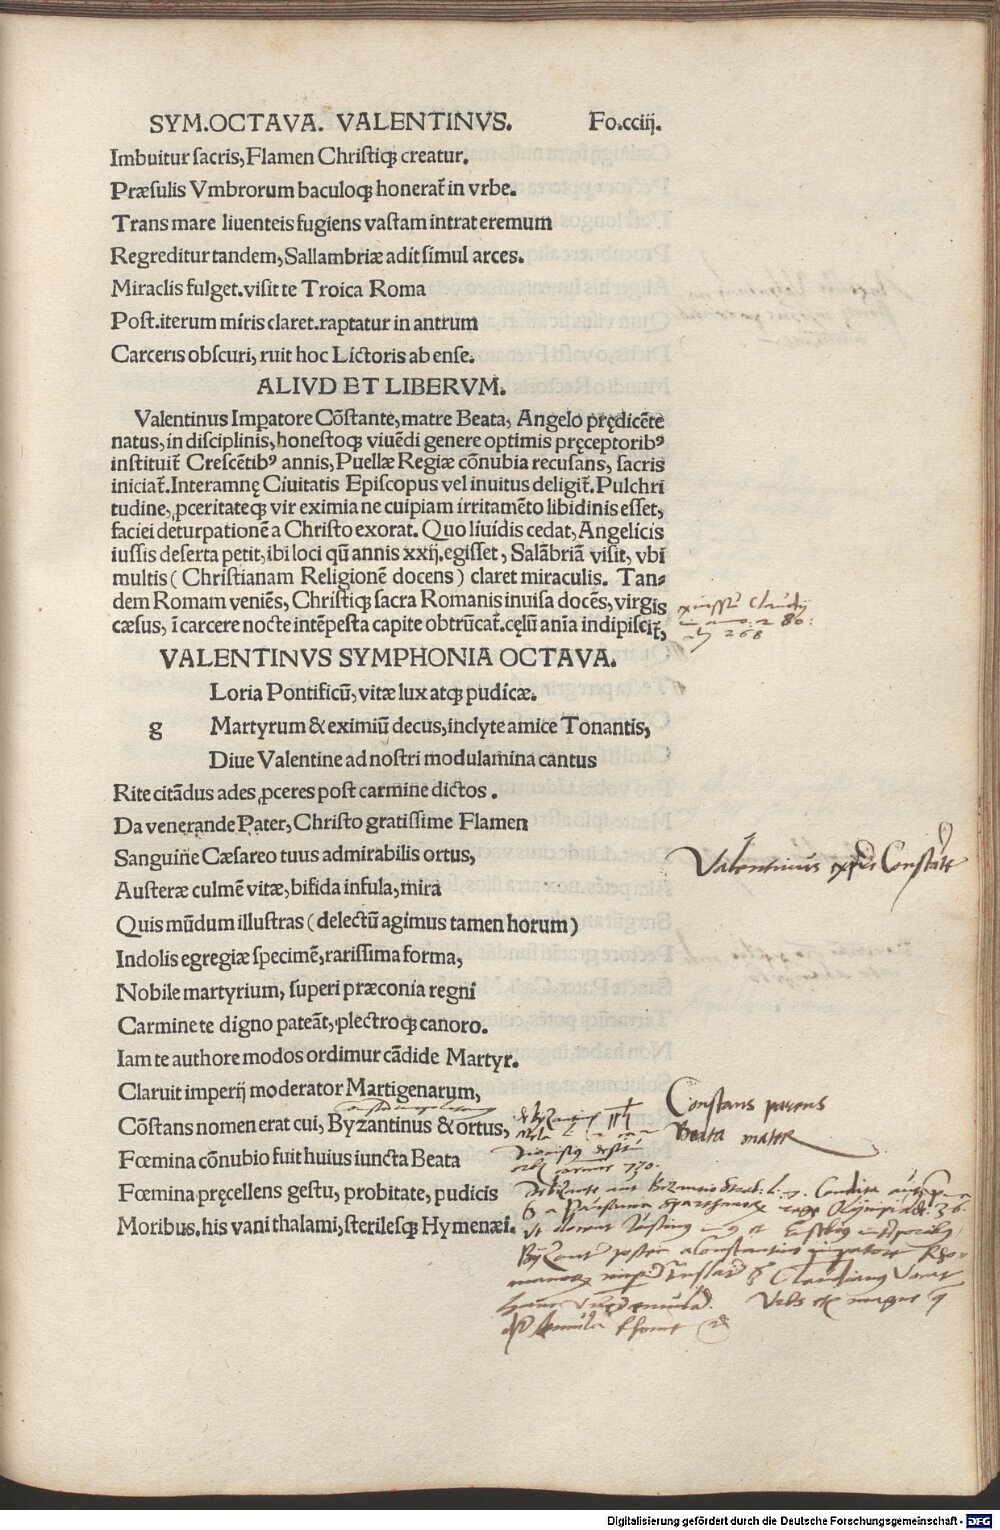 SYM.OCTAVA. VALENTINVS. Fo.cciij.
Imbuitur sacris, Flamen Christiqꝫ creatur.
Præsulis Vmbrorum baculoqꝫ honerat̃ in vrbe.
Trans mare liuenteis fugiens vastam intrat eremum
Regreditur tandem, Sallambriæ adit simul arces.
Miraclis fulget. visit te Troica Roma
Post. iterum miris claret. raptatur in antrum
Carceris obscuri, ruit hoc Lictoris ab ense.
ALIVD ET LIBERVM.
Valentinus Imꝑatore Cõstante, matre Beata, Angelo prędicẽte
natus, in disciplinis, honestoqꝫ viuẽdi genere optimis pręceptoribꝰ
instituit̃ Crescẽtibꝰ annis, Puellæ Regiæ cõnubia recusans, sacris
iniciat̃. Interamnę Ciuitatis Episcopus vel inuitus deligit̃. Pulchri
tudine, ꝓceritateqꝫ vir eximia ne cuipiam irritamẽto libidinis esset,
faciei deturpationẽ a Christo exorat. Quo liuidis cedat, Angelicis
iussis deserta petit, ibi loci qũ annis xxij. egisset, Salãbriã visit, vbi
multis ( Christianam Religionẽ docens ) claret miraculis. Tan-
dem Romam veniẽs, Christiqꝫ sacra Romanis inuisa docẽs, virgis
cæsus, ĩ carcere nocte intẽpesta capite obtrũcat̃. cęlũ aniã indipiscit̃,
Claudij
280:
268
VALENTINVS SYMPHONIA OCTAVA.
Loria Pontificũ, vitæ lux atqꝫ pudicæ.
g Martyrum & eximiũ decus, inclyte amice Tonantis,
Diue Valentine ad nostri modulamina cantus
Rite citãdus ades, ꝓceres post carmine dictos .
Da venerande Pater, Christo gratissime Flamen
Sanguine Cæsareo tuus admirabilis ortus,
Austeræ culmẽ vitæ, bifida infula, mira
Quis mũdum illustras ( delectũ agimus tamen horum )
Indolis egregiæ specimẽ, rarissima forma,
Nobile martyrium, superi præconia regni
Carmine te digno pateãt, plectroqꝫ canoro.
Iam te authore modos ordimur cãdide Martyr.
Claruit imperij moderator Martigenarum,
Cõstans nomen erat cui, Byzantinus & ortus,
Fœmina cõnubio fuit huius iuncta Beata
Fœmina pręcellens gestu, probitate, pudicis
Moribus. his vani thalami, sterilesqꝫ Hymenæi.
Valentinus
Constans parens
Beata mater
Digitalisierung gefördert durch die Deutsche Forschungsgemeinschaft - DFG